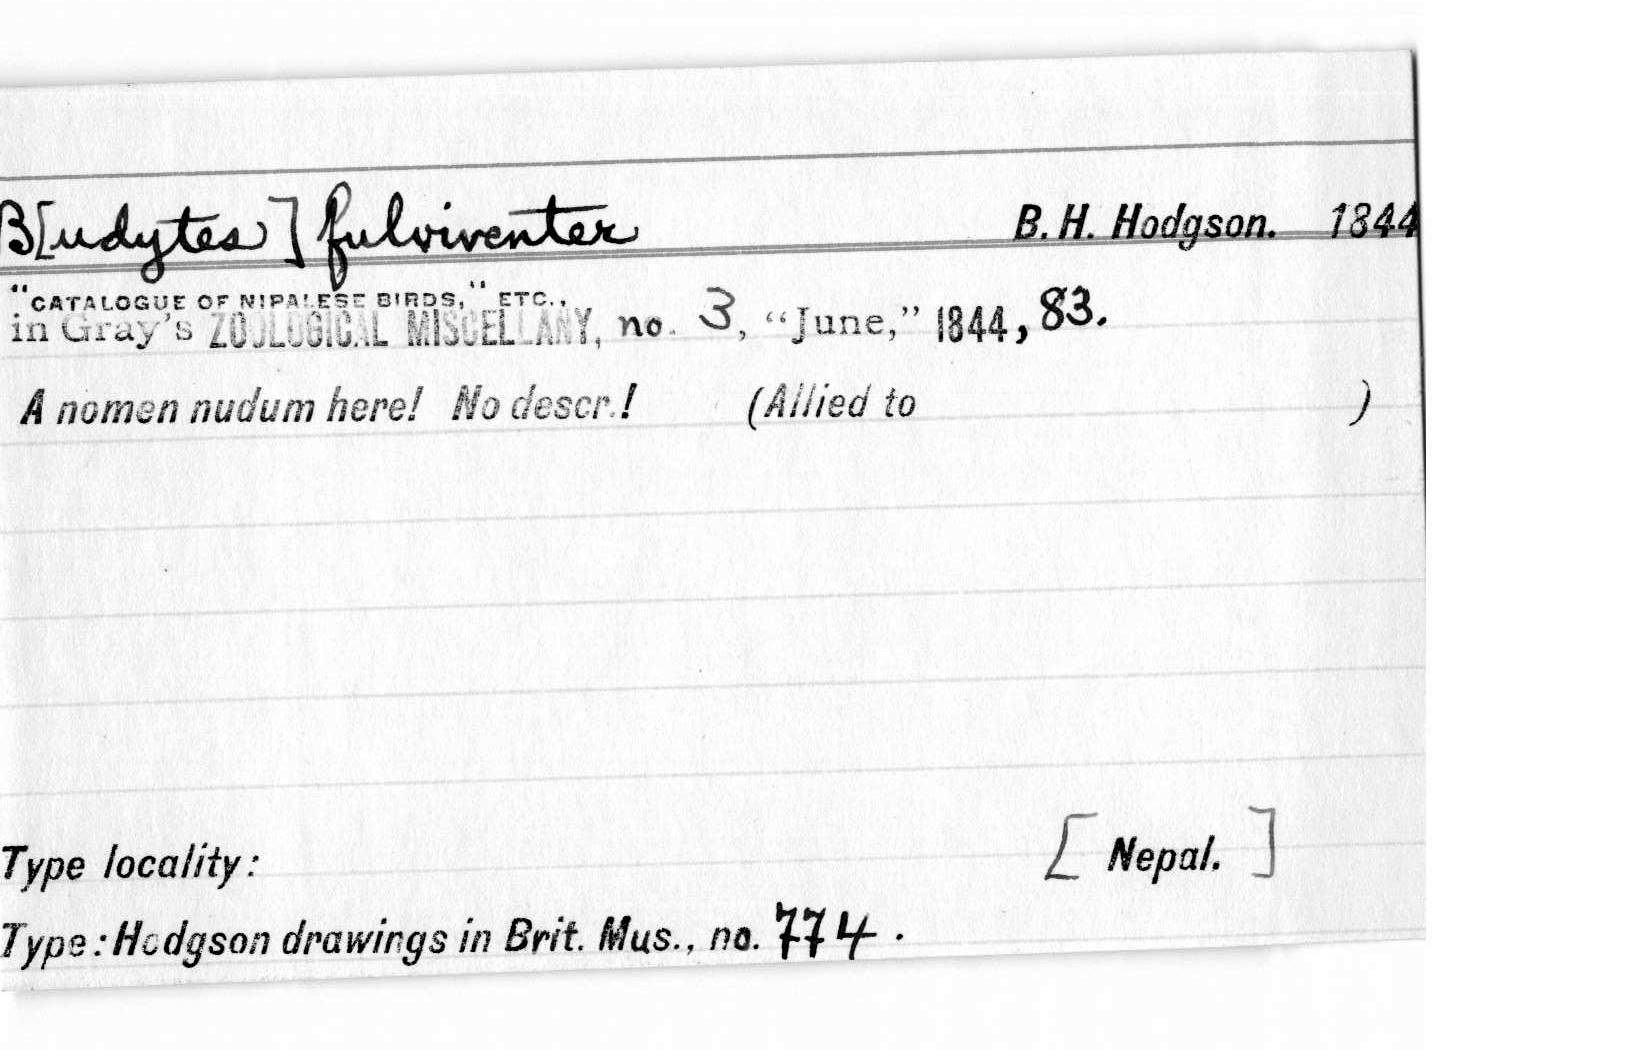 B[udytes] fulviventer B. H. Hodgson. 1844
"CATALOGUE OF NIPALESE BIRDS," ETC.,
in Gray's ZOOLOGICAL MISCELLANY, no. 3, "June," 1844, 83.
A nomen nudum here! No descr.! (Allied to )
Type locality: [Nepal.]
Type: Hodgson drawings in Brit. Mus., no. 774.